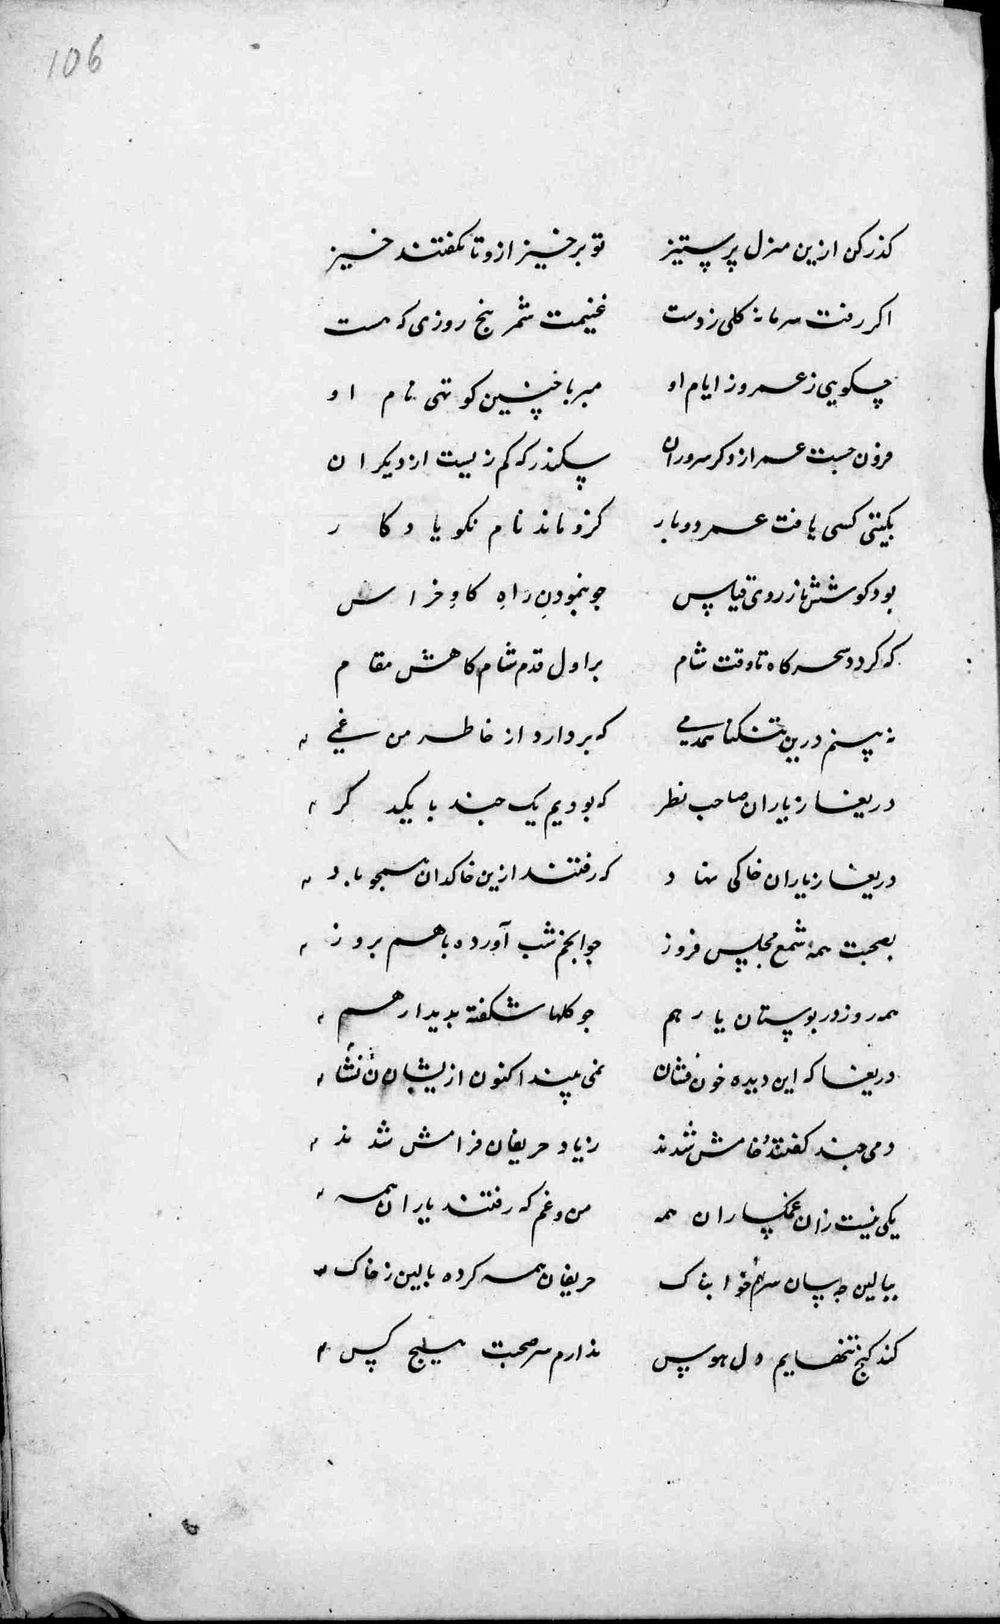 106
کذر کن ازین منزل پر ستیز تو برخیز ازو تا نکفتند خیز
اکر رفت سرمایه کلی ز دست غنیمت شمر پنج روزی که هست
چکویی ز عمر وز ایام او مبر با چنین کوتهی نام او
فزون جست عمر از دکر سروران سکندر که کم زیست از دیکران
بکیتی کسی یافت عمر دوبار کزو ماند نام نکو یادکار
بود کوشش از روی قیاس چو پیمودن راه کاو خراس
که کردد سحرکاه تا وقت شام بر اول قدم شامکاهش مقام
نه بینم درین تنکنا همدمی که بردارد از خاطر من غمی
دریغا ز یاران صاحب نظر که بودیم یک چند با یکدکر
دریغا ز یاران خاکی نهاد که رفتند ازین خاکدان همچو باد
بصحبت همه شمع مجلس فروز چو انجم شب آورده با هم بروز
همه روز در بوستان یار هم چو کلها شکفته بدیدار هم
دریغا که این دیده خون فشان نمی بیند اکنون ازیشان نشان
دمی چند کفتند و خامش شدند ز یاد حریفان فرامش شدند
یکی نیست زان غمکساران همه من و غم که رفتند یاران همه
ببالین چه سان سر نهم خوابناک حریفان همه کرده بالین ز خاک
کند کنج تنهاییم دل هوس ندارم سر صحبت هیچ کس